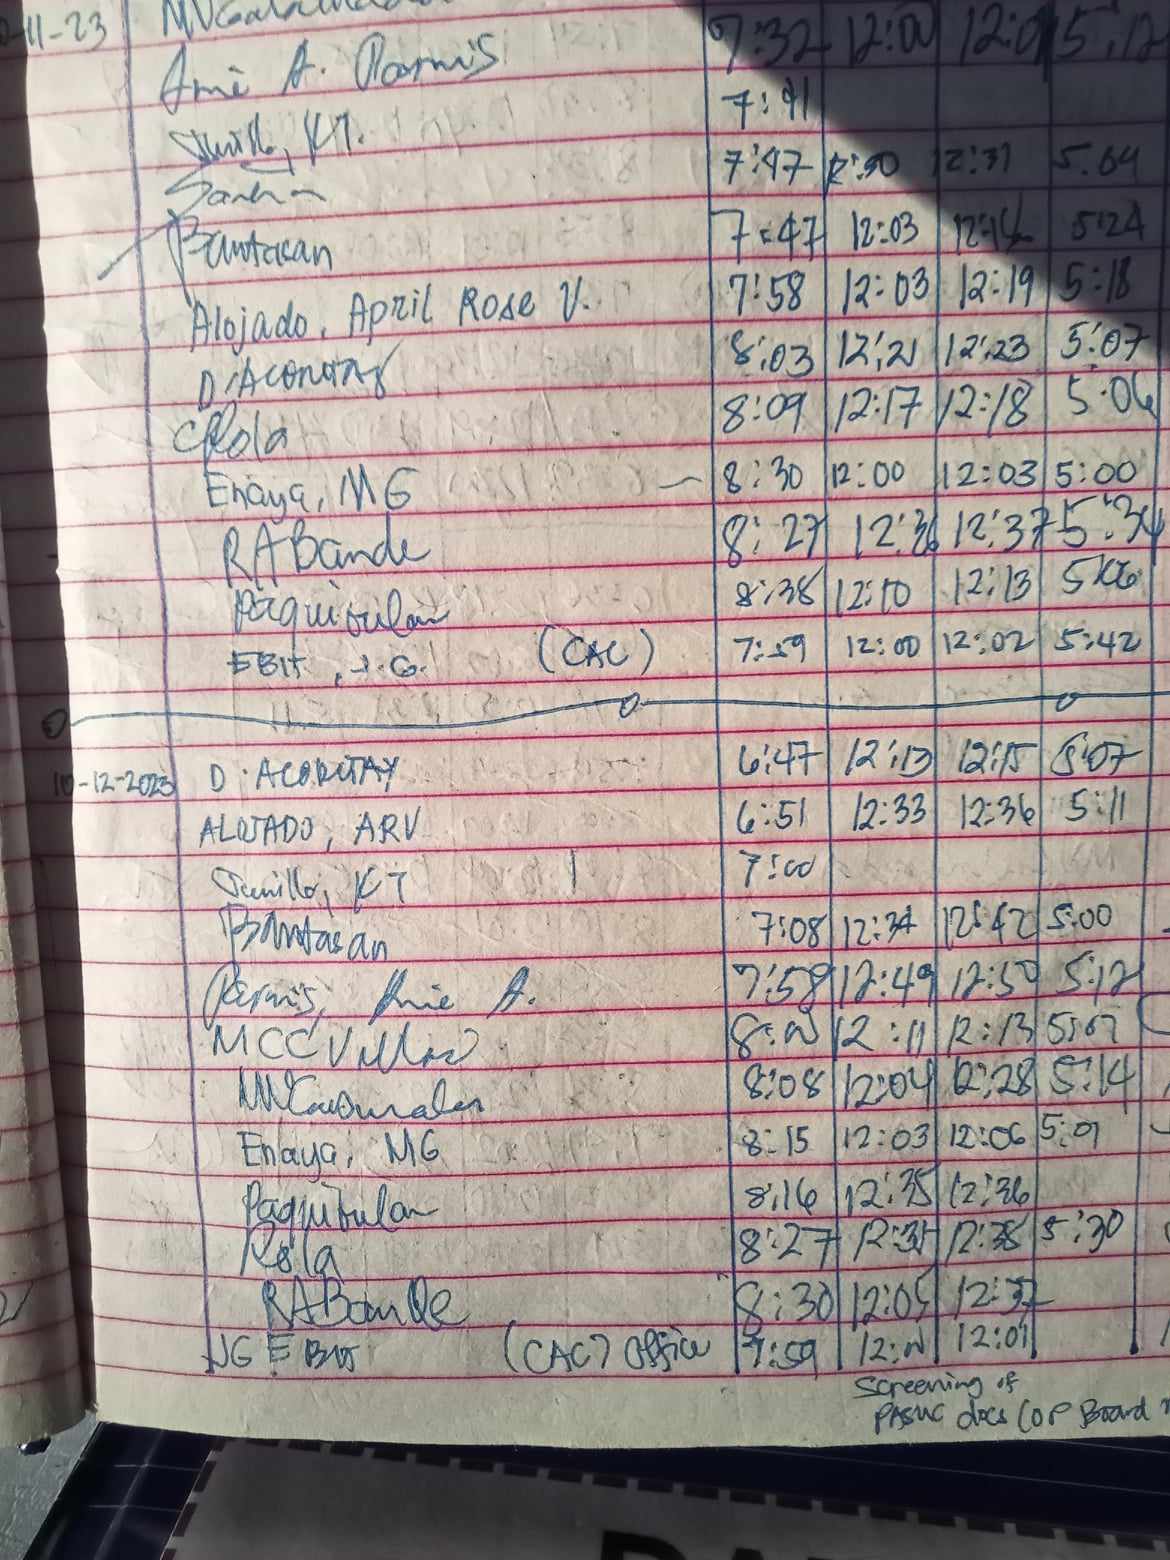 -11-23
Amie A. Parmis 7:32 12:00 5:12
7:41
Junillo, KT. 7:47 12:30 12:31 5:04
Bantasan 7:47 12:03 12:14 5:24
Alojado, April Rose V. 7:58 12:03 12:19 5:18
D. Acoritay 8:03 12:21 12:23 5:07
CRola 8:09 12:17 12:18 5:06
Enaya, MG 8:30 12:00 12:03 5:00
RABande 8:27 12:36 12:37 5:34
Paquibulan 8:38 12:10 12:13 5:06
EBIT, J.G. (CAC) 7:59 12:00 12:02 5:42
10-12-2023 D. ACORITAY 6:47 12:13 12:15 5:07
ALOJADO, ARV 6:51 12:33 12:36 5:11
Junillo, KT 7:00
Bantasan 7:08 12:34 12:42 5:00
Parmis, Amie A. 7:58 12:49 12:50 5:12
MCCVillao 12:11 12:13 5:07
8:08 12:04 12:28 5:14
Enaya, MG 8:15 12:03 12:06 5:01
Paquibulan 8:16 12:35 12:36
Rola 8:27 12:35 12:38 5:30
RABande 8:30 12:05 12:37
JG EBIT (CAC) Office 7:59 12:01
Screening of
PASUC docs (OP Board